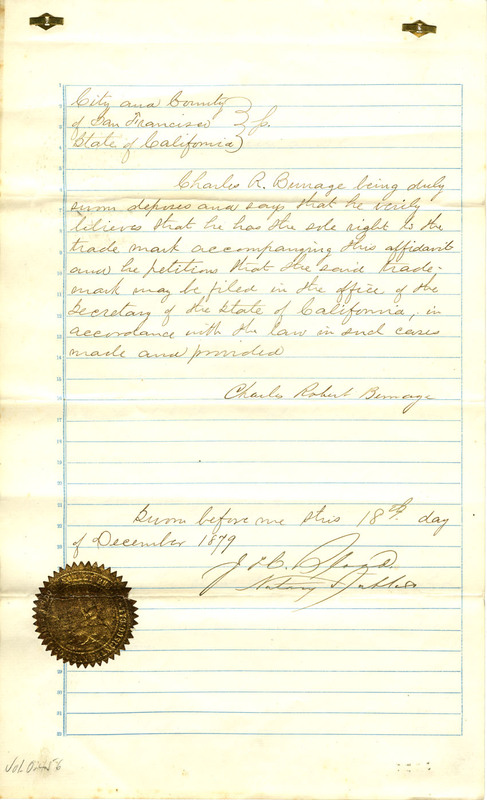 City and County
of San Francisco } ss.
State of California
Charles R. Bernage being duly
sworn deposes and says that he verily
believes that he has the sole right to the
trade mark accompanying this affidavit
and he petitions that the said trade-
mark may be filed in the office of the
Secretary of the State of California, in
accordance with the law in such cases
made and provided
Charles Robert Bernage
Sworn before me this 18th day
of December 1879
Notary Public